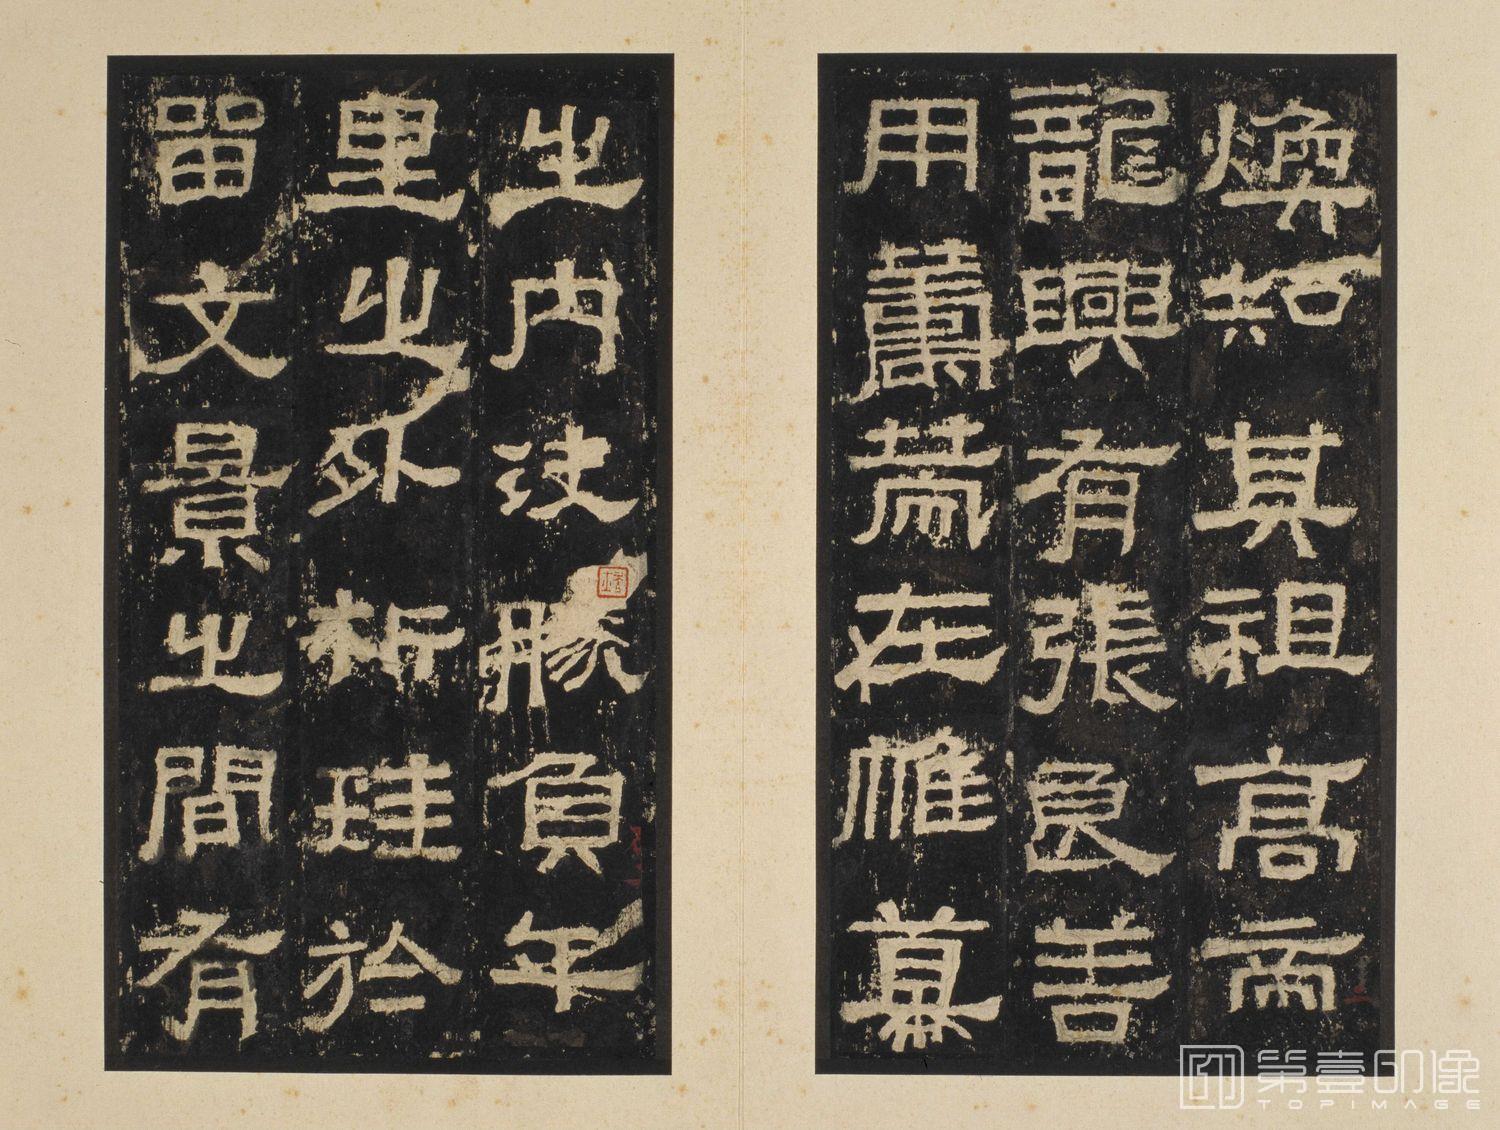 煥知其祖高帝
龍興有張良善
用籌策在帷幕
之內決勝負千
里之外析珪於
留文景之間有
第壹印像
TOPIMAGE